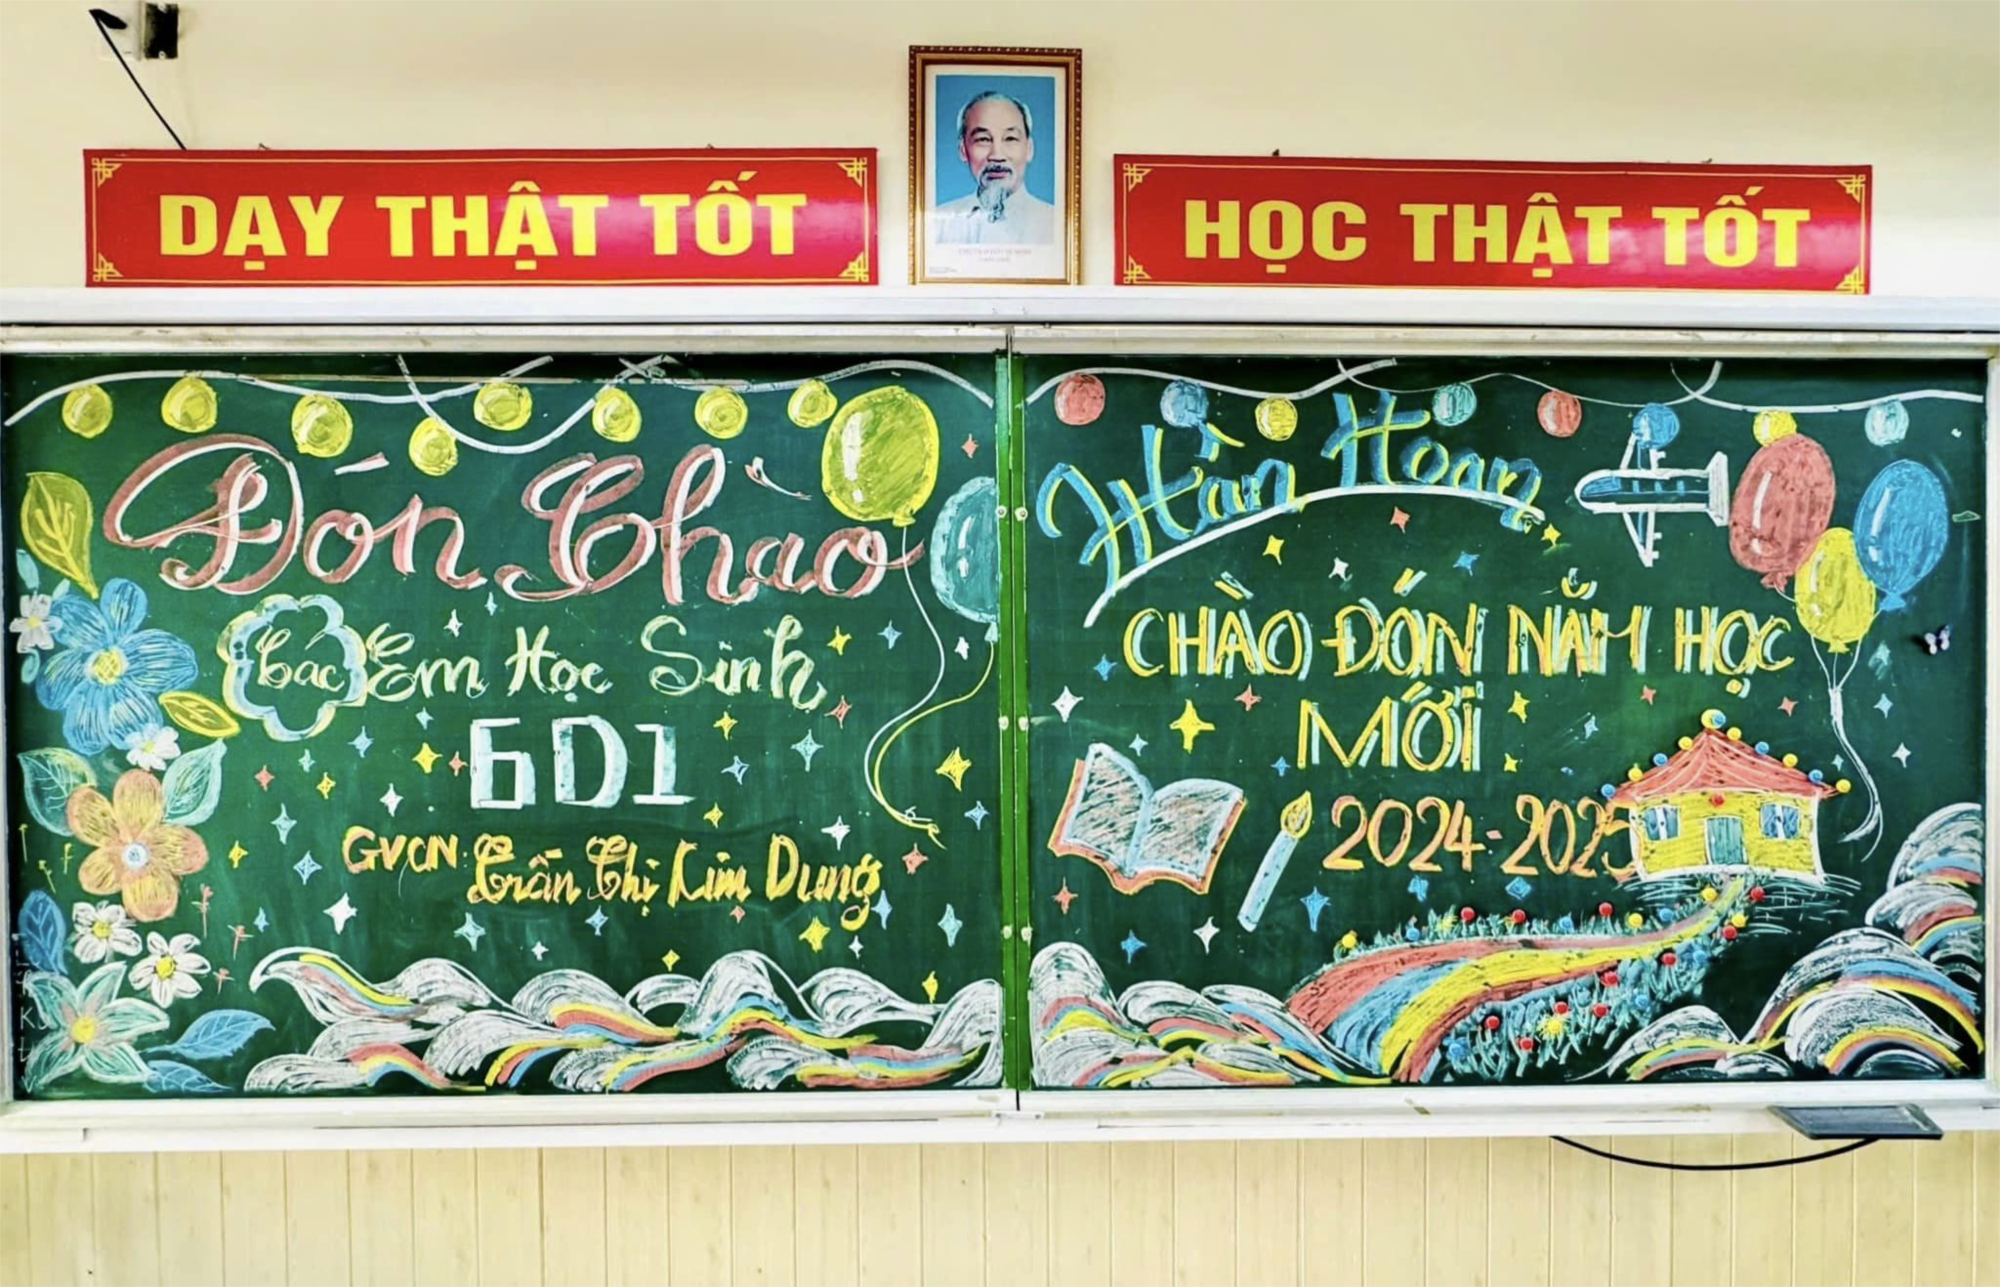 DẠY THẬT TỐT
HỌC THẬT TỐT
Đón Chào
Các Em Học Sinh
6D1
GVCN: Trần Thị Kim Dung
Hân Hoan
CHÀO ĐÓN NĂM HỌC
MỚI
2024-2025